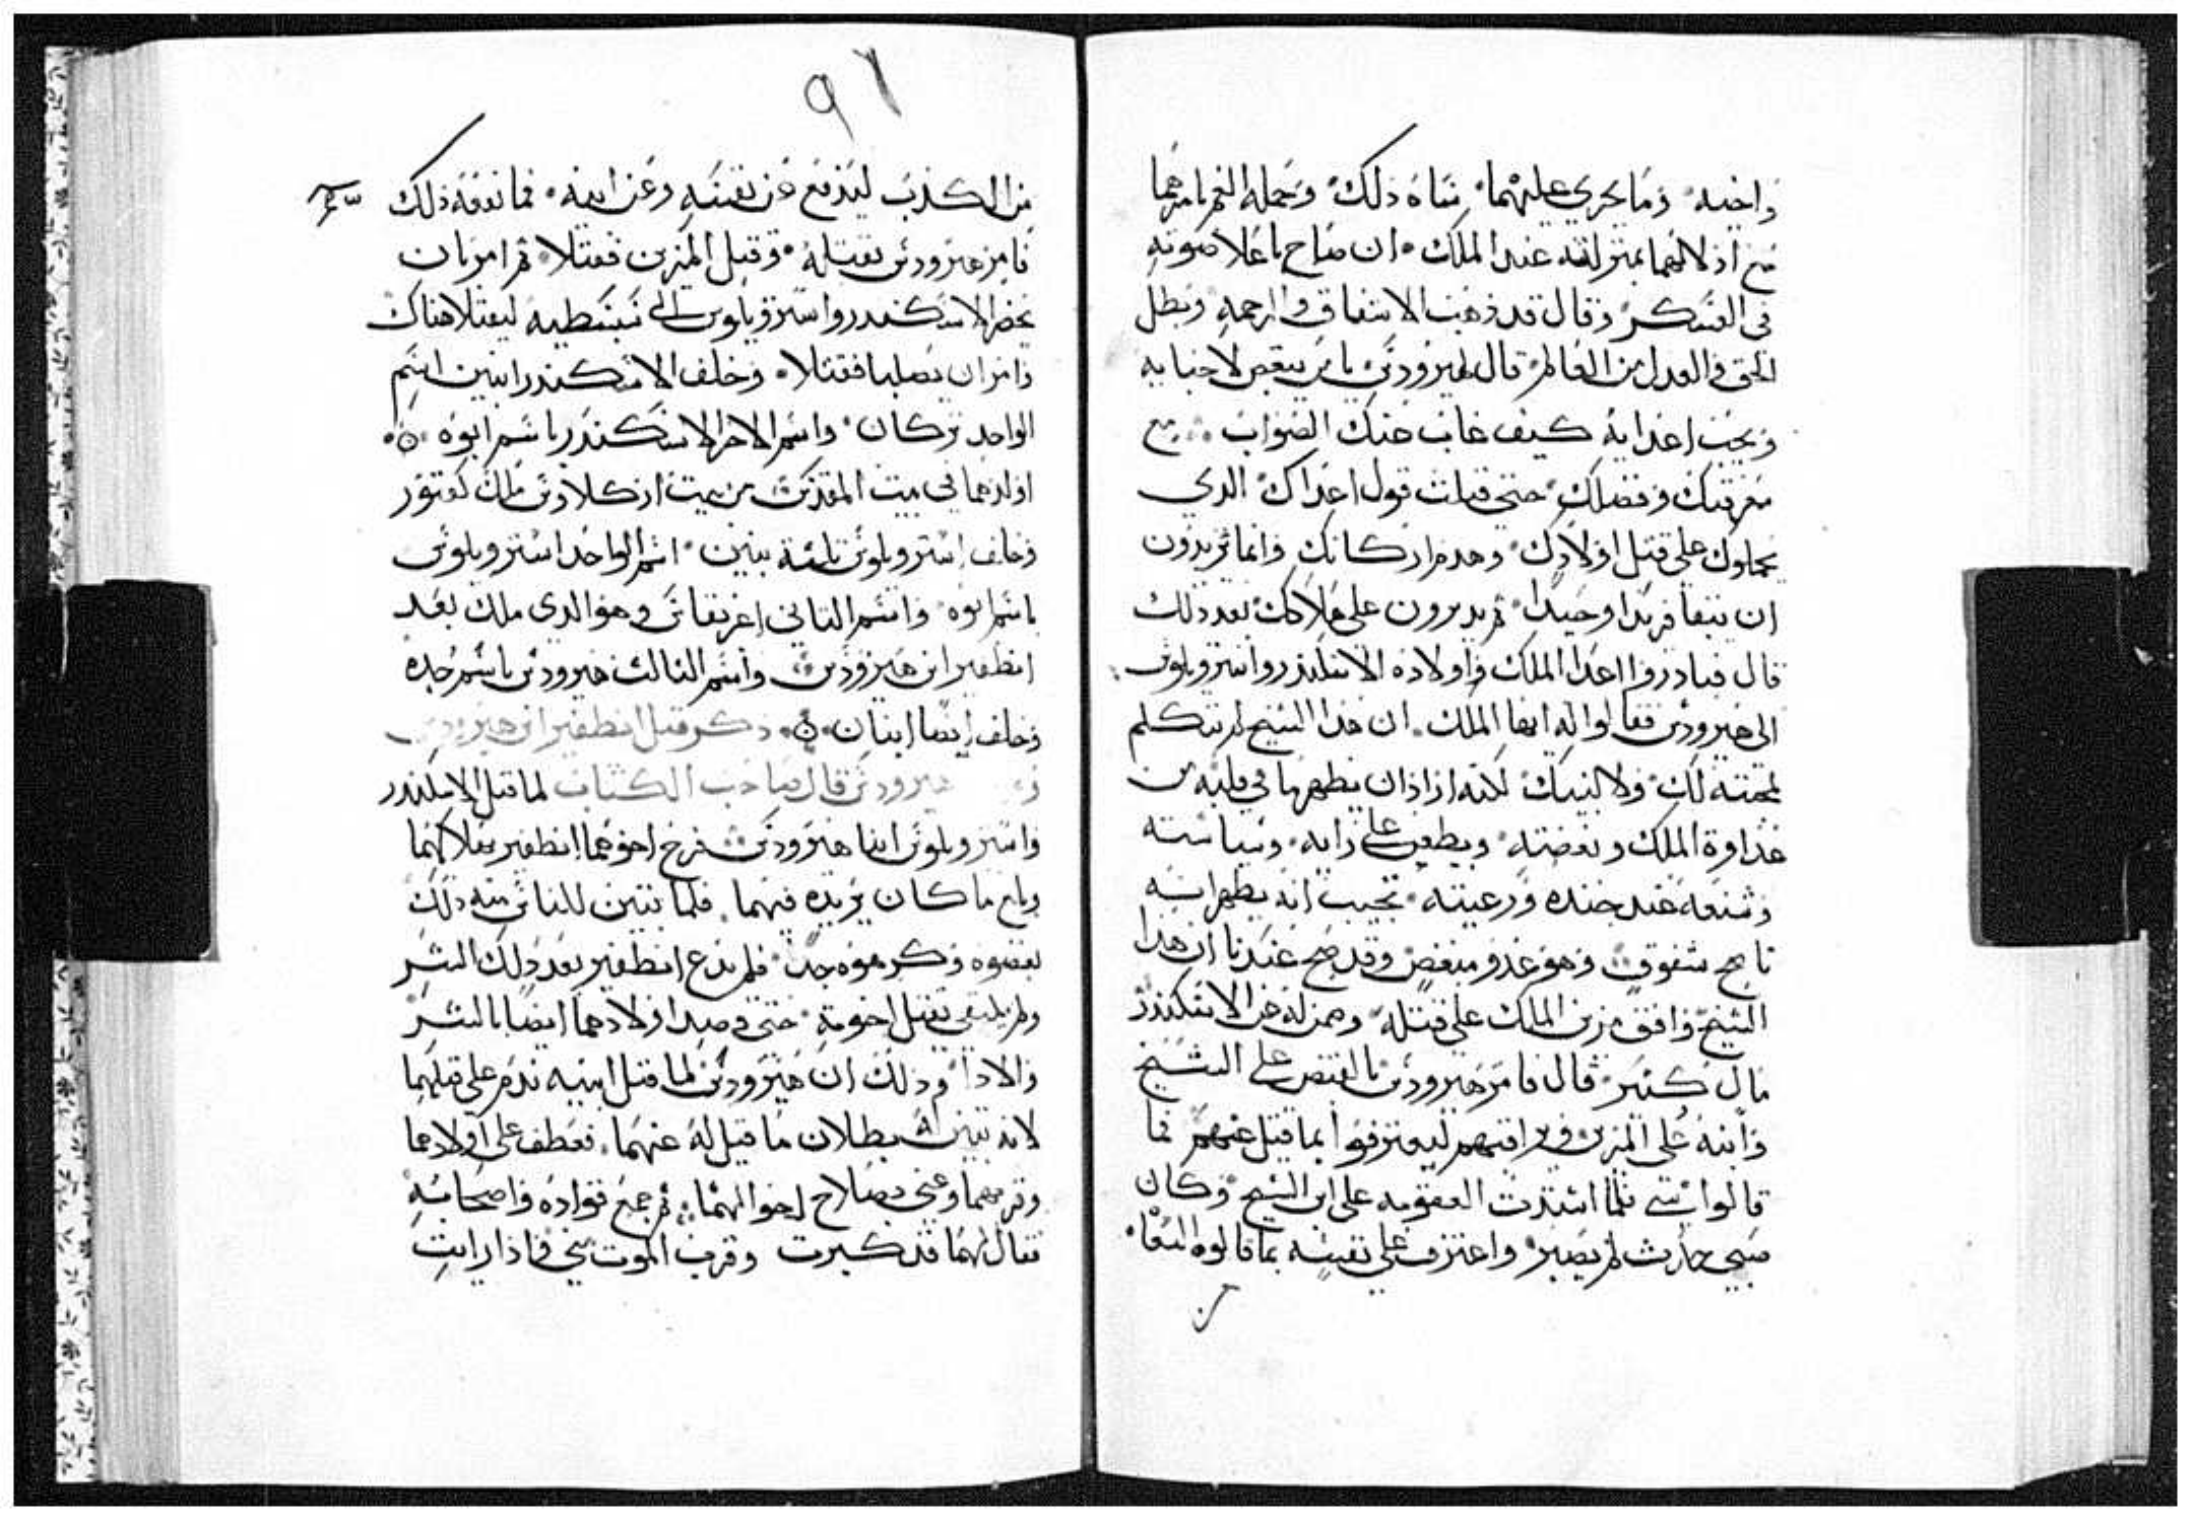 واخيه وما يجري عليهما ساه ذلك وحمله الغم بامرهما
مع ادلالهما بمنزلته عند الملك ان صاح باعلا صوته
في العسكر وقال قد ذهب الاشفاق والرحمه وبطل
الحق والعدل من العالم قال لهيرودس يا من يبغض لاحبابه
ويحب اعدايه كيف غاب عنك الصواب مع
معرفتك وفضلك حتى قبلت قول اعداك الدي
يحملوك على قتل اولادك وهدم اركانك وانما يريدون
ان تبقا فريدا وحيدا ثم يدبرون على هلاكك بعد ذلك
قال فبادروا اعدا الملك واولاده الاسكندر واستروبلوس
الى هيرودس فقالوا له ايها الملك ان هدا الشيخ لم يتكلم
لمحبته لك ولا لبنيك لكنه اراد ان يظهر ما في قلبه من
عداوة الملك وبغضته ويطعن على رايه وسياسته
وشنعه عند جنده ورعيته بحيث انه يظهر انه
ناصح شفوق وهو عدو مبغض وقد صح عندنا ان هدا
الشيخ وافق مزين الملك على قتله وضمن له عن الاسكندر
مال كثير قال فامر هيرودس بالقبض على الشيخ
وابنه على المزين وفي عراقبهم ليعترفوا بما قيل عنهم فما
قالوا شي فلما اشتدت العقوبه على ابن الشيخ وكان
صبي حدث لم يصبر واعترف على نفسه بما قالوه السعا
من
٩٦
من الكدب ليدفع عن نفسه وعن ابيه فما نفعه ذلك
فامر هيرودس بقتله وقتل المزين فقتلا ثم امر بان
يحضر الاسكندر واستروبلوس الى سبسطيه ليقتلا هناك
وامر ان يصلبا فقتلا وخلف الاسكندر ابنين اسم
الواحد تركان واسم الاخر الاسكندر باسم ابوه
اولدهما في بيت المقدس من بنت اركلاوس ملك كفتور
وخلف استروبلوس ثلثة بنين اسم الواحد استروبلوس
باسم ابوه واسم التاني اغريفاس وهو الدي ملك بعد
انطفير ابن هيرودس واسم التالت هيرودس باسم جده
وخلف ايضا ابنتان ذكر قتل انطفير ابن هيرودس
هيرودس قال صاحب الكتاب لما قتل الاسكندر
واستروبلوس ابنا هيرودس فرح اخوهما انطفير بهلاكهما
وبلغ ما كان يريده فيهما فلما تبين للناس منه ذلك
بغضوه وكرهوه جدا فلم يدع انطفير بعد ذلك الشر
ولم يكتفي بقتل اخوته حتى قصد اولادهما ايضا بالشر
والادا وذلك ان هيرودس لما قتل ابنيه ندم على قتلهما
لانه تبين له بطلان ما قيل له عنهما فعطف على اولادهما
وقربهما وعني بصلاح احوالهما ثم جمع قواده واصحابه
فقال لهما قد كبرت وقرب الموت مني فادا رايت